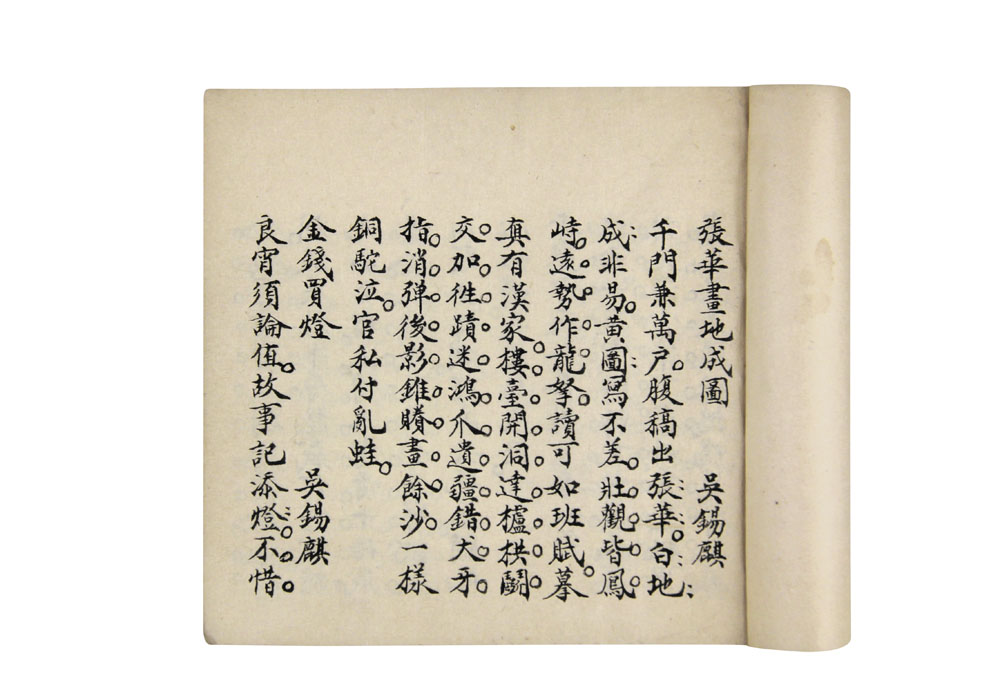 張華畫地成圖 吳錫麒
千門兼萬戶。腹稿出張華。白地
成非易。黃圖寫不差。壯觀皆鳳
峙。遠勢作龍拏。讀可如班賦。摹
真有漢家。樓臺開洞達。櫨栱鬬
交加。徃蹟迷鴻爪。遺疆錯犬牙。
指消彈後影。錐賸畫餘沙。一樣
銅駝泣。官私付亂蛙。
金錢買燈 吳錫麒
良宵須論值。故事記添燈。不惜